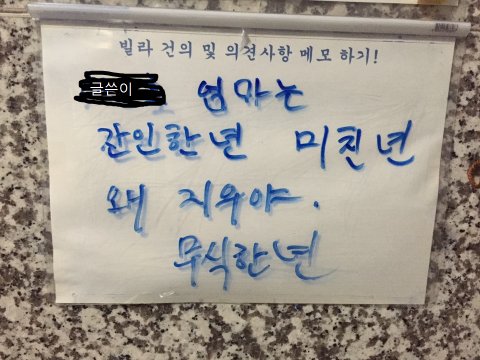 빌라 건의 및 의견사항 메모 하기!
글쓴이 엄마는
잔인한년 미친년
왜 지우야.
무식한년